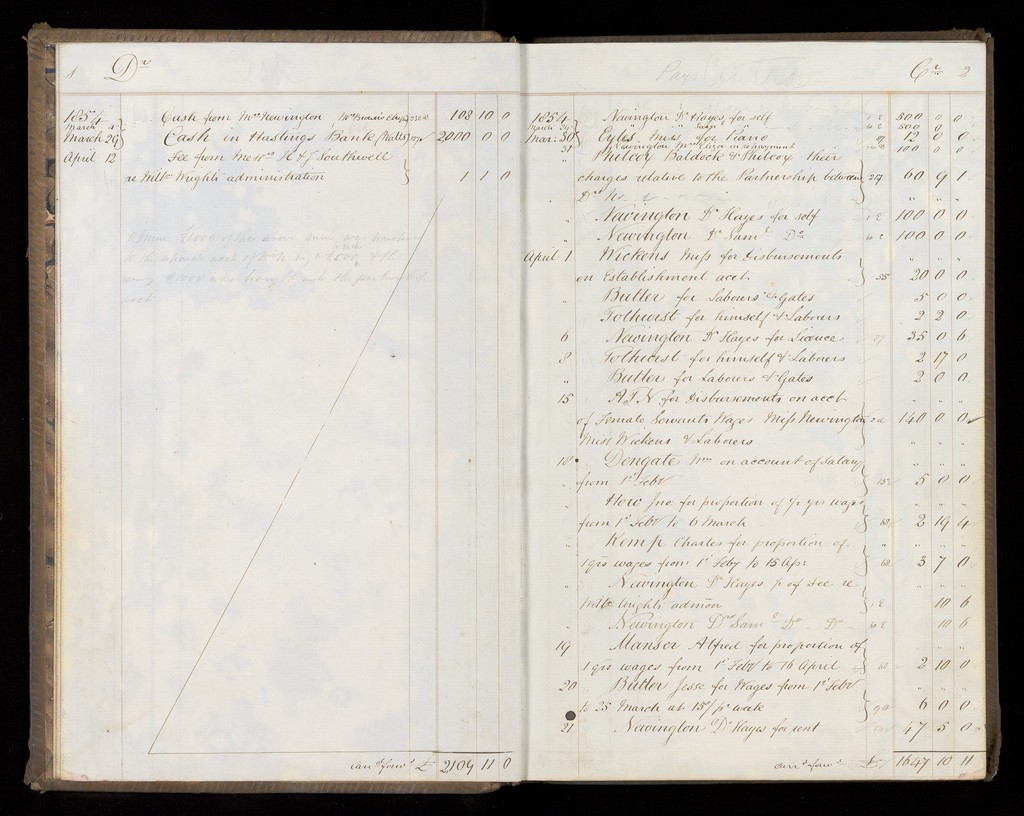 1
Dr
1854
March 4 Cash from Mrs Newington 108 10 0
March 29 Cash in Hastings Bank (Watts) 2000 0 0
April 12 Fee from Messrs H & J Southwell
re Wright's administration 1 1 0
carrd forwd £ 2109 11 0
Cr 2
1854
March 29 Newington Dr Hayes for self 500 0 0
" Saml " 500 0 0
Mar: 30 Eyles Miss for Piano 12 0 0
Newington Miss Eliza in repayment 100 0 0
31 Philcox Baldock & Philcox their
charges relative to the Partnership between 217 60 9 1
Drs N. &
" Newington Dr Hayes for self 100 0 0
" Newington Dr Saml Do 100 0 0
April 1 Wickens Miss for Disbursements
on Establishment acct. 55 20 0 0
" Butler for Labours & Gates 5 0 0
" Tolhurst for himself & Laborers 2 2 0
6 Newington Dr Hayes for Licence 27 35 0 6
8 Tolhurst for himself & Laborers 2 17 0
" Butler for Laborers & Gates 2 0 0
15 A.T.N for Disbursements on acct
of Female Servants Wages Miss Newington 140 0 0
Miss Wickens & Laborers
18 Dengate Wm on account of Salary
from 1st Feby 5 0 0
" How Jno. for proportion of yrs wages
from 1st Feby to 6 March 60 2 19 4
" Kemp Charles for proportion of
1 qrs wages from 1st Feby to 15 Apr: 60 3 7 0
" Newington Dr Hayes p of Fee re
Wrights admon 10 6
" Newington Dr Saml Do Do 10 6
19 Manser Alfred for proportion of
1 qrs wages from 1st Feby to 16 April 60 2 10 0
20 Butler Jesse for Wages from 1st Feby
to 25 March at 15/ pr week 90 6 0 0
21 Newington Dr Hayes for rent 47 5 0
carrd forwd £ 1647 10 11